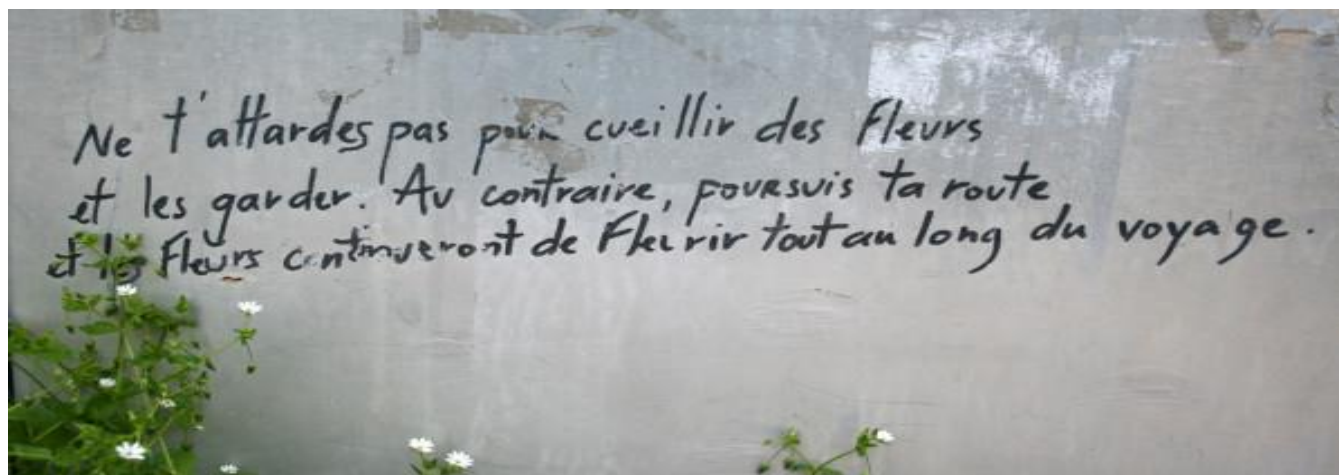 Ne t'attardes pas pour cueillir des fleurs
et les garder. Au contraire, poursuis ta route
et les fleurs continueront de fleurir tout au long du voyage.